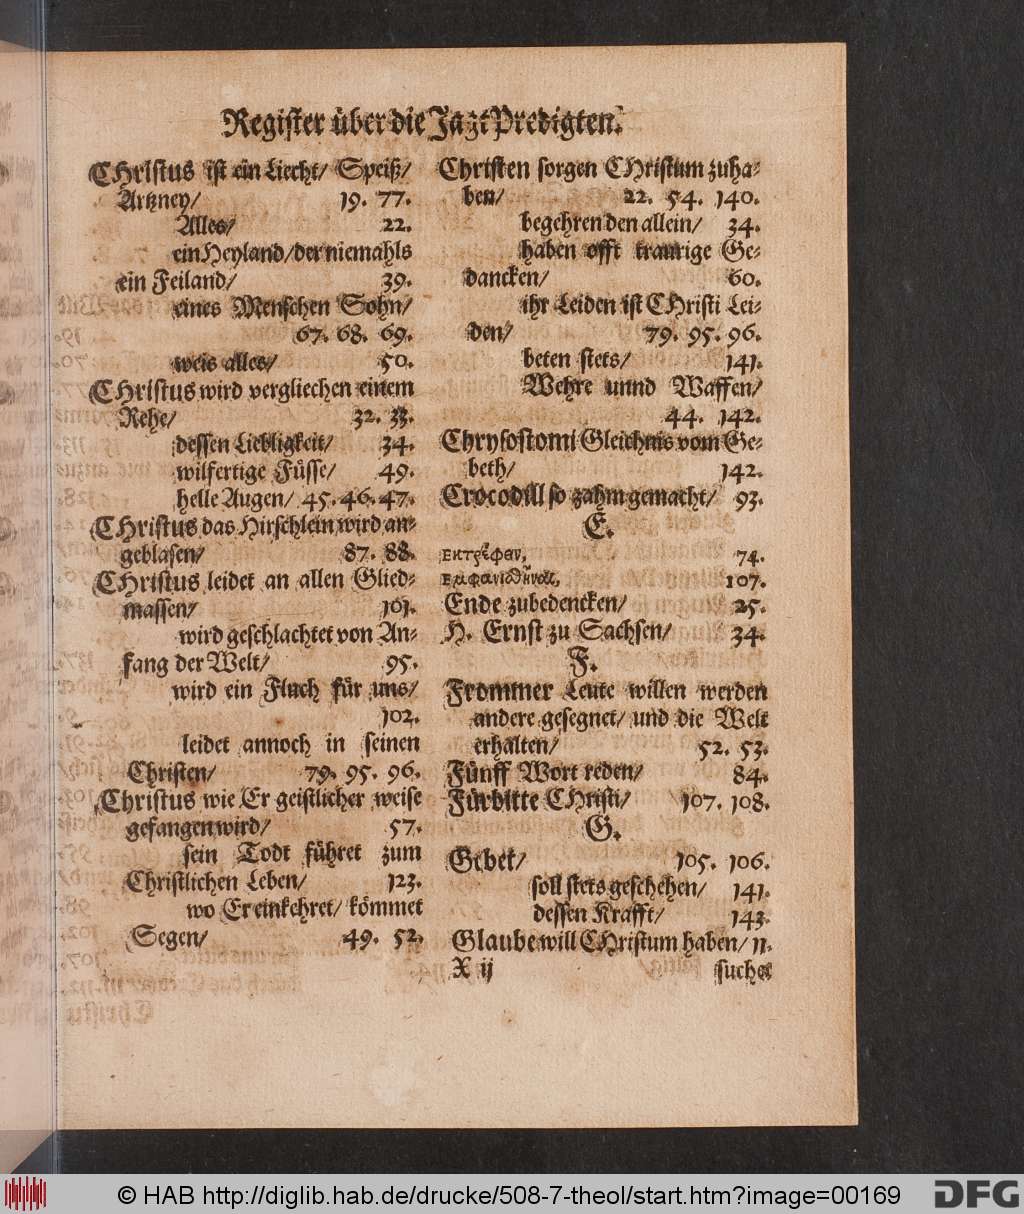 Register über die JaztPredigten.
CHristus ist ein Liecht/ Speiß/
Artzney/ 19. 77.
Alles/ 22.
ein Heyland/ der niemahls
ein Feiland/ 39.
eines Menschen Sohn/
67. 68. 69.
weis alles/ 50.
CHristus wird vergliechen einem
Rehe/ 32. 33.
dessen Liebligkeit/ 34.
wilfertige Füsse/ 49.
helle Augen/ 45. 46. 47.
CHristus das Hirschlein wird an-
geblasen/ 87. 88.
CHristus leidet an allen Glied-
massen/ 101.
wird geschlachtet von An-
fang der Welt/ 95.
wird ein Fluch für uns/
102.
leidet annoch in seinen
Christen/ 79. 95. 96.
Christus wie Er geistlicher weise
gefangen wird/ 57.
sein Todt führet zum
Christlichen Leben/ 123.
wo Er einkehret/ kömmet
Segen/ 49. 52.
Christen sorgen CHristum zuha-
ben/ 22. 54. 140.
begehren den allein/ 34.
haben offt traurige Ge-
dancken/ 60.
ihr Leiden ist CHristi Lei-
den/ 79. 95. 96.
beten stets/ 141.
Wehre unnd Waffen/
44. 142.
Chrysostomi Gleichnis vom Ge-
beth/ 142.
Crocodill so zahm gemacht/ 93.
E.
εκτρέφειν, 74.
εμφανισθῆναι, 107.
Ende zubedencken/ 25.
H. Ernst zu Sachsen/ 34.
F.
Frommer Leute willen werden
andere gesegnet/ und die Welt
erhalten/ 52. 53.
Fünff Wort reden/ 84.
Fürbitte CHristi/ 107. 108.
G.
Gebet/ 105. 106.
soll stets geschehen/ 141.
dessen Krafft/ 143.
Glaube will CHristum haben/ 11.
X ij suchet
© HAB http://diglib.hab.de/drucke/508-7-theol/start.htm?image=00169
DFG